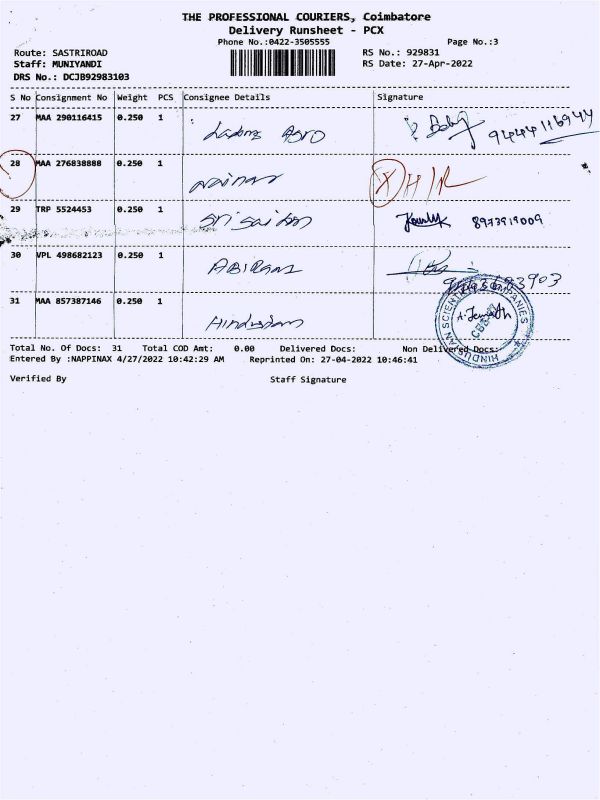 THE PROFESSIONAL COURIERS, Coimbatore
Delivery Runsheet - PCX
Phone No.:0422-3505555 Page No.:3
Route: SASTRIROAD RS No.: 929831
Staff: MUNIYANDI RS Date: 27-Apr-2022
DRS No.: DCJB92983103
S No Consignment No Weight PCS Consignee Details Signature
27 MAA 290116415 0.250 1
9444116944
28 MAA 276838888 0.250 1
29 TRP 5524453 0.250 1 Sri Sai
8973919009
30 VPL 498682123 0.250 1 ABIRami
31 MAA 857387146 0.250 1 Hindustan
HINDUSTAN SCIENTIFIC COMPANIES
Total No. Of Docs: 31 Total COD Amt: 0.00 Delivered Docs: Non Delivered Docs:
Entered By :NAPPINAX 4/27/2022 10:42:29 AM Reprinted On: 27-04-2022 10:46:41
Verified By Staff Signature